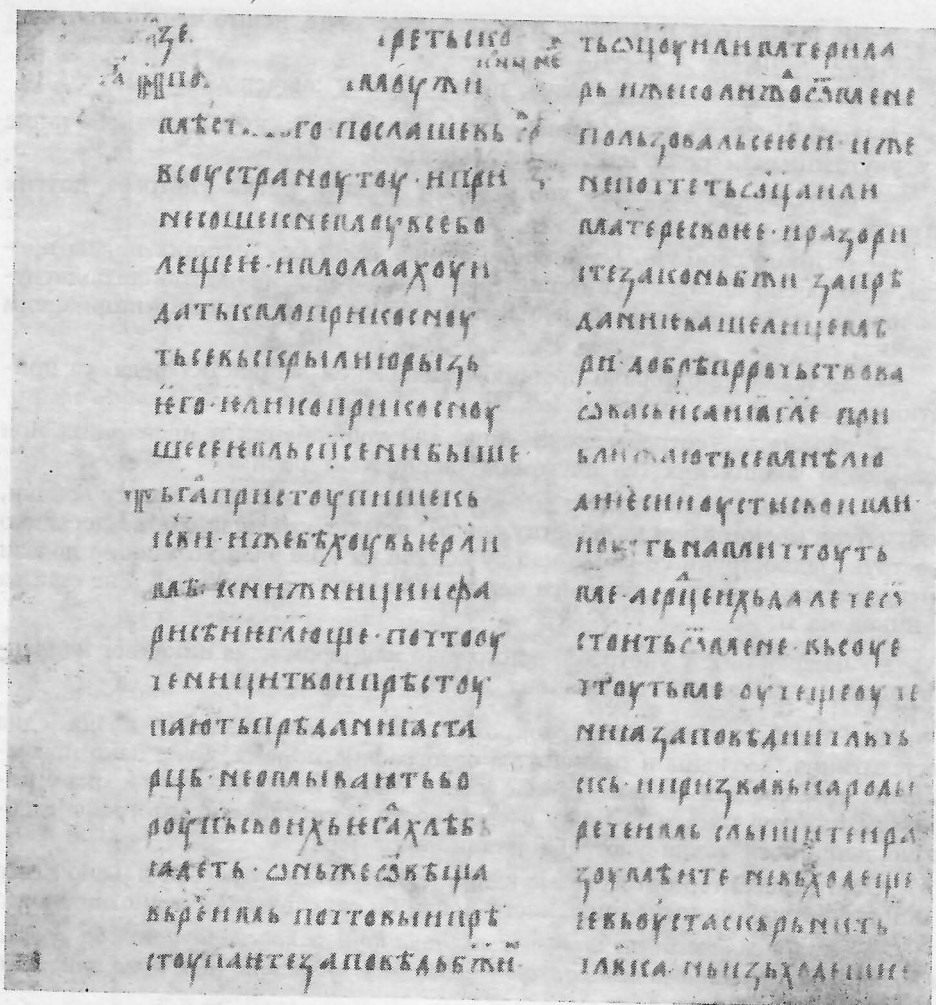 мѣст го послаше вь
всоу страноу тоу · и при
несоше к немоу все бо
лещеѥ · и молаахоу и
да тькмо прикосноу
ть се вьскрылию ризь
ѥго · ѥлико прикосноу
ше се ѥмь сп҃сени быше ·
тьгда пристоупише кь
іс҃ви · иже бѣхоу вь ѥрⷭ҇ли
мѣ · книжници и фа
рисѣи гл҃юще · почто оу
ченици твои прѣстоу
пають прѣданиꙗ ста
рць · не омывають бо
роукь своихь ѥгⷣа хлѣбь
ꙗдеть · ѡнь же ѿвѣща
вь рече имь почто вы прѣ
стоупаите заповѣдь бж҃ию
ть ѡц҃оу или матери да
рь иже колиждо ѿ мене
пользоваль се ѥси · иже
не почтеть ѡц҃а или
матере своѥ · и разори
сте законь бж҃и за прѣ
даниѥ ваше лицемѣ
ри · добрѣ прⷪ҇рочьствова
ѡ вась исаиꙗ гл҃ѥ при
ближають се мнѣ лю
диѥ сии оусты своими
и оустьнами чтоуть
ме · а срⷣце ихь далече ѿ
стоить ѿ мене · вь соуѥ
чтоуть ме оучеще оуче
ниꙗ заповѣдии чл҃вчь
скь · и призвавь народы
рече имь слышите и ра
зоумѣите не вьходеще
ѥ вь оуста сквьрьнить
чл҃вка · нь изьходещеѥ